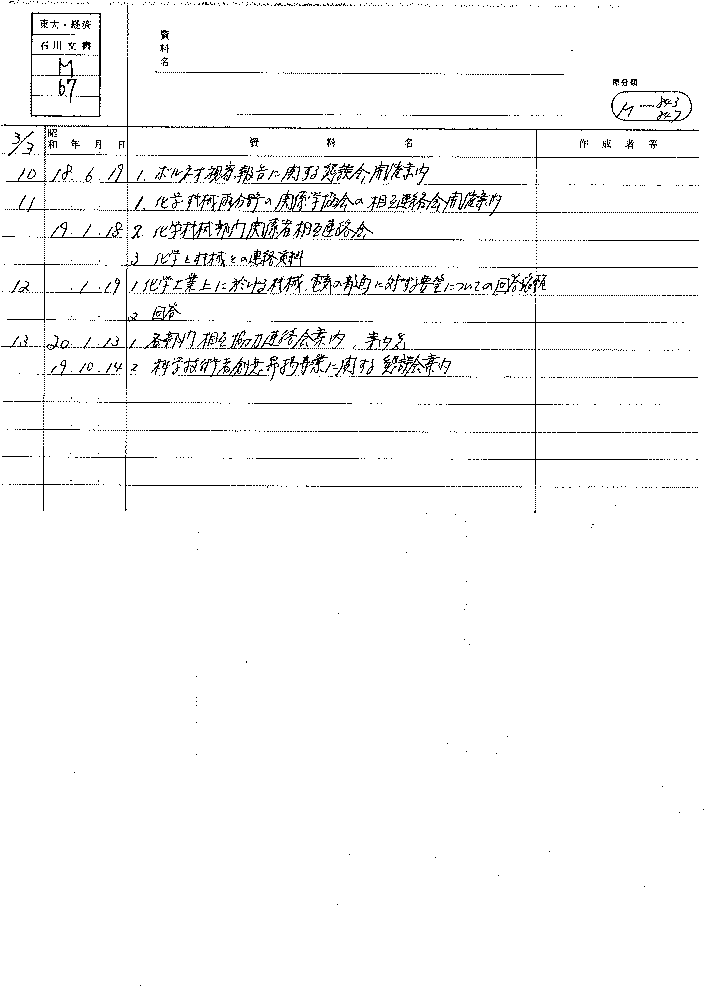 東大・経済
石川文書
M
67
資料名
原分類
M—843
847
3/3 昭和 年 月 日 資料名 作成者等
10 18.6.19 1. ボルネオ視察報告に関する懇談会開催案内
11 1. 化学機械両分野の関係学協会の相互連絡会開催案内
19.1.18 2. 化学機械部門関係者相互連絡会
3 化学と機械との連絡資料
12 .1.19 1. 化学工業上に於ける機械、電気の動向に対する要望についての回答依頼
2 回答
13 20.1.13 1 各部門相互協力連絡会案内
19.10.14 2. 科学技術者創意昂揚事業に関する懇談会案内